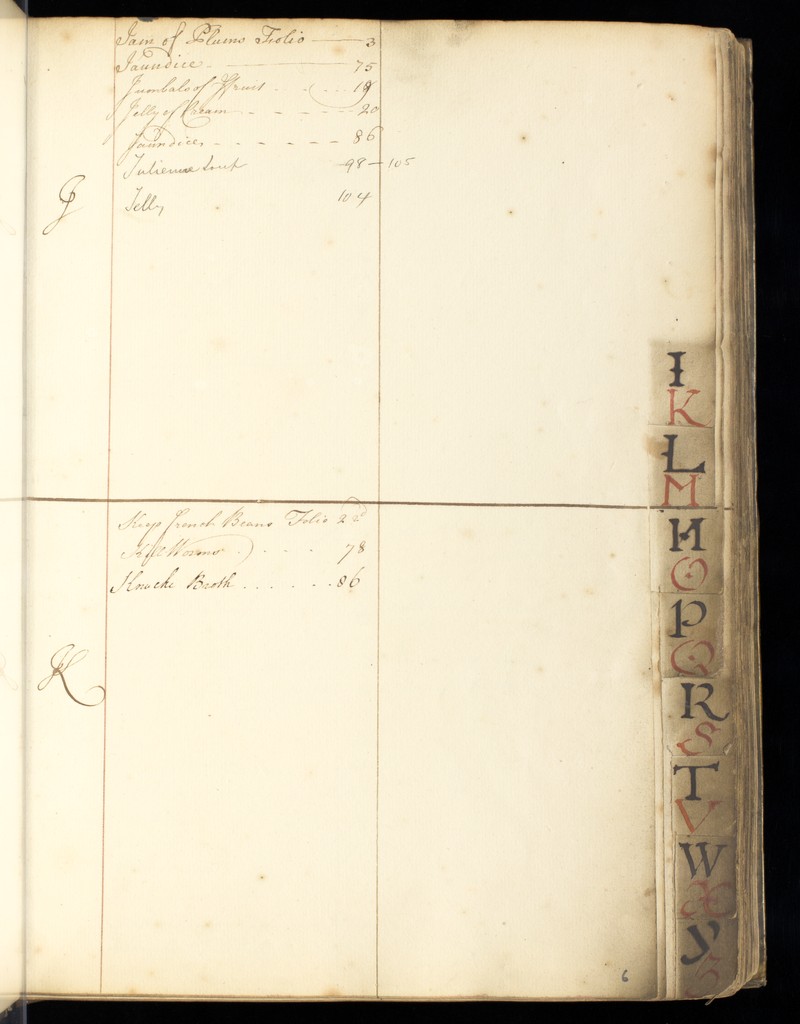 Jam of Plums Folio — 3
Jaundice — 75
Jumbals of ffruit - - - 18
Jelly of Cream - - - - 20
Jaundice, - - - - - - 86
Julienne 98 — 105
J
Jelly 104
Keep french Beans Folio 22d
Kill Worms) . . . 78
Knuckle Broth . . . . . . 86
K
I
K
L
M
N
O
P
Q
R
S
T
V
W
X
Y
Z
6